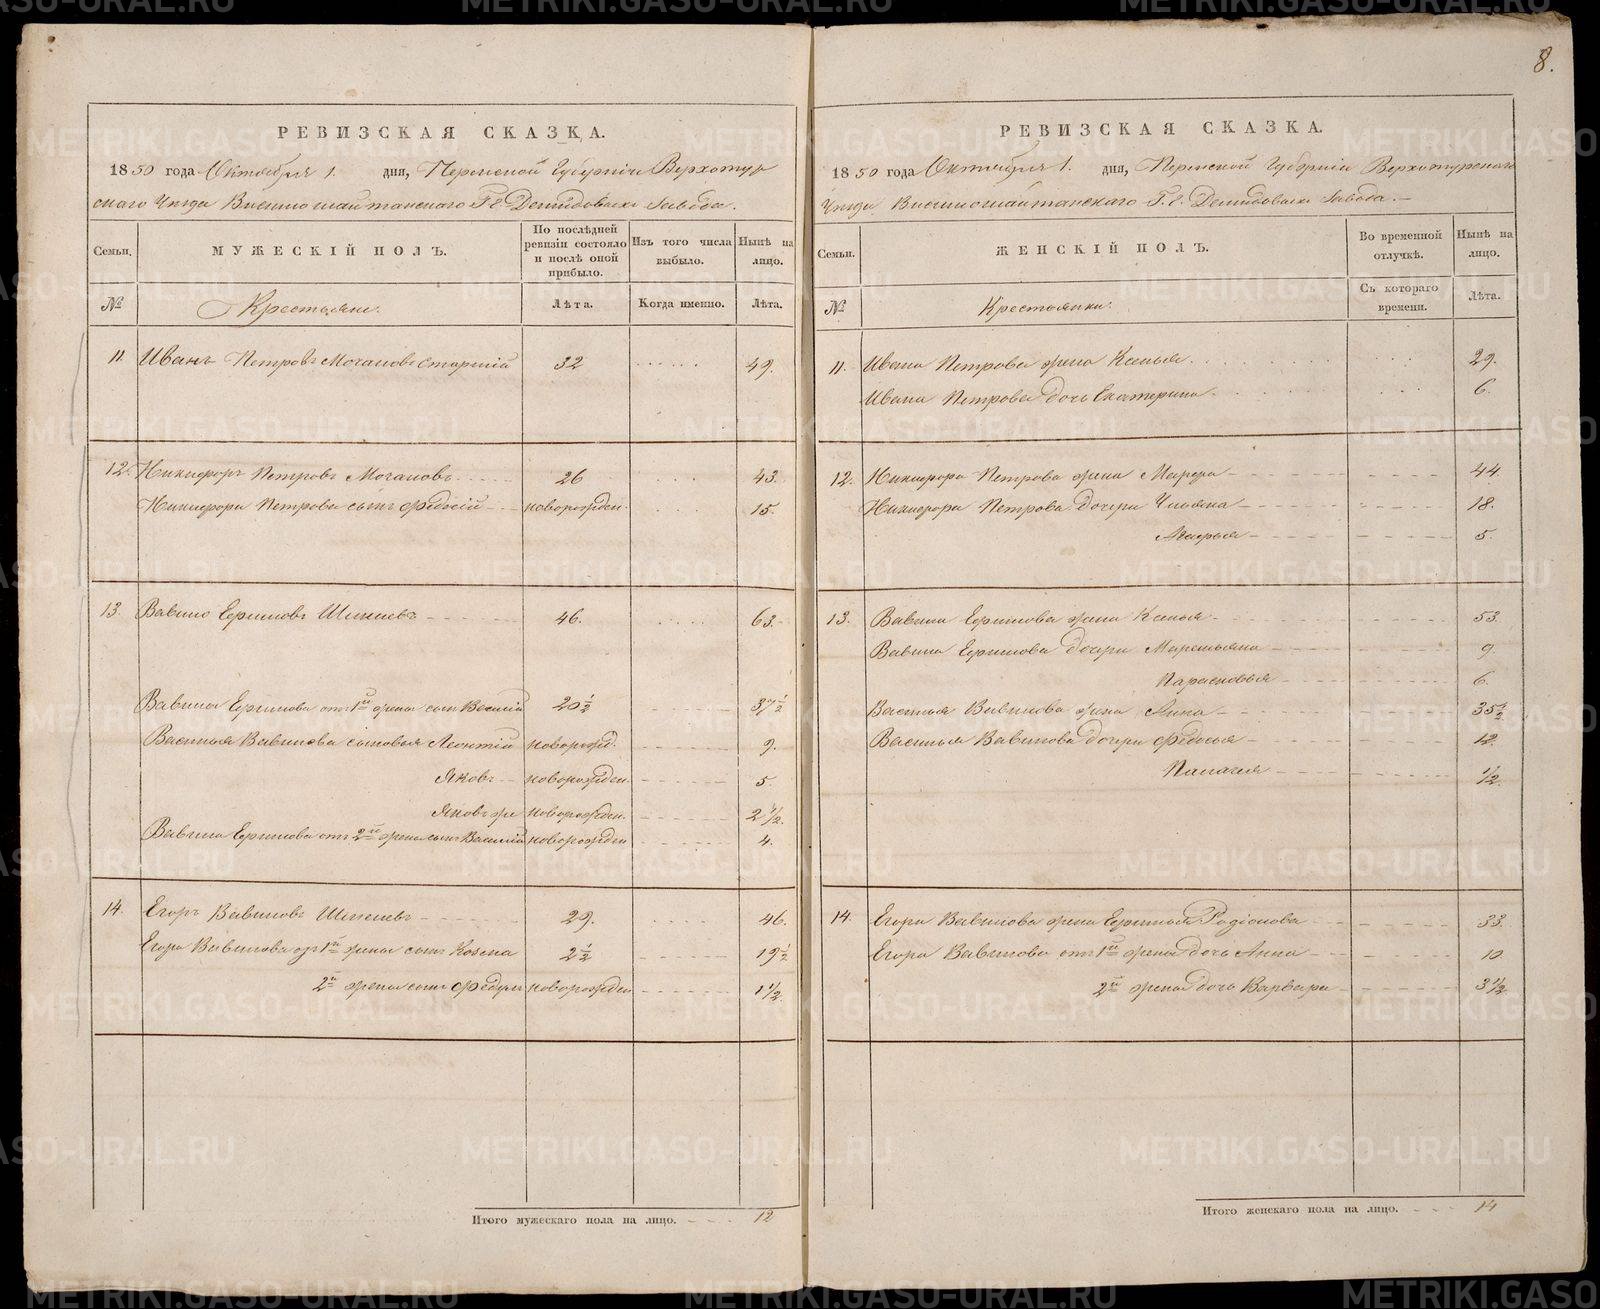 8.
РЕВИЗСКАЯ СКАЗКА.
1850 года Октября 1. дня, Пермской Губерніи Верхотур
скаго Уѣзда Висимошайтанскаго Г.г. Демидовыхъ Завода.
Семьи.
МУЖЕСКІЙ ПОЛЪ.
По послѣдней ревизіи состояло и послѣ оной прибыло.
Изъ того числа выбыло.
Нынѣ на лицо.
№
Крестьяне.
Лѣта.
Когда именно.
Лѣта.
11. Иванъ Петровъ Мочаловъ старшій 32 49.
12. Никифоръ Петровъ Мочаловъ 26 43.
Никифора Петрова сынъ Федосій новорожден. 15.
13. Вавило Ефимовъ 46. 63.
Вавила Ефимова отъ 1й жены сынъ Василій 20½ 37½
Василья Вавилова сыновья Леонтій новорожд. 9.
Яковъ новорожден. 5.
Яковъ же новорожден. 2½.
Вавила Ефимова отъ 2й жены сынъ Василій новорожден 4.
14. Егоръ Вавиловъ 29. 46.
Егора Вавилова отъ 1й жены сынъ Козма 2½ 19½
2й жены сынъ Федулъ новорожден 1½.
Итого мужескаго пола на лицо. 12
РЕВИЗСКАЯ СКАЗКА.
1850 года Октября 1. дня, Пермской Губерніи Верхотурскаго
Уѣзда Висимошайтанскаго Г.г. Демидовыхъ Завода.
Семьи.
ЖЕНСКІЙ ПОЛЪ.
Во временной отлучкѣ.
Нынѣ на лицо.
№
Крестьянки.
Съ котораго времени.
Лѣта.
11. Ивана Петрова жена Ксенья 29.
Ивана Петрова дочь Екатерина 6.
12. Никифора Петрова жена Марфа 44
Никифора Петрова дочери Ульяна 18.
Агафья 5.
13. Вавила Ефимова жена Ксенья 53.
Вавила Ефимова дочери Маремьяна 9.
Парасковья 6.
Василья Вавилова жена Анна 35½
Василья Вавилова дочери Федосья 12.
Палагея ½.
14. Егора Вавилова жена Ефимья Родіонова 33.
Егора Вавилова отъ 1й жены дочь Анна 10
2й жены дочь Варвара 3½.
Итого женскаго пола на лицо. 14
METRIKI.GASO-URAL.RU